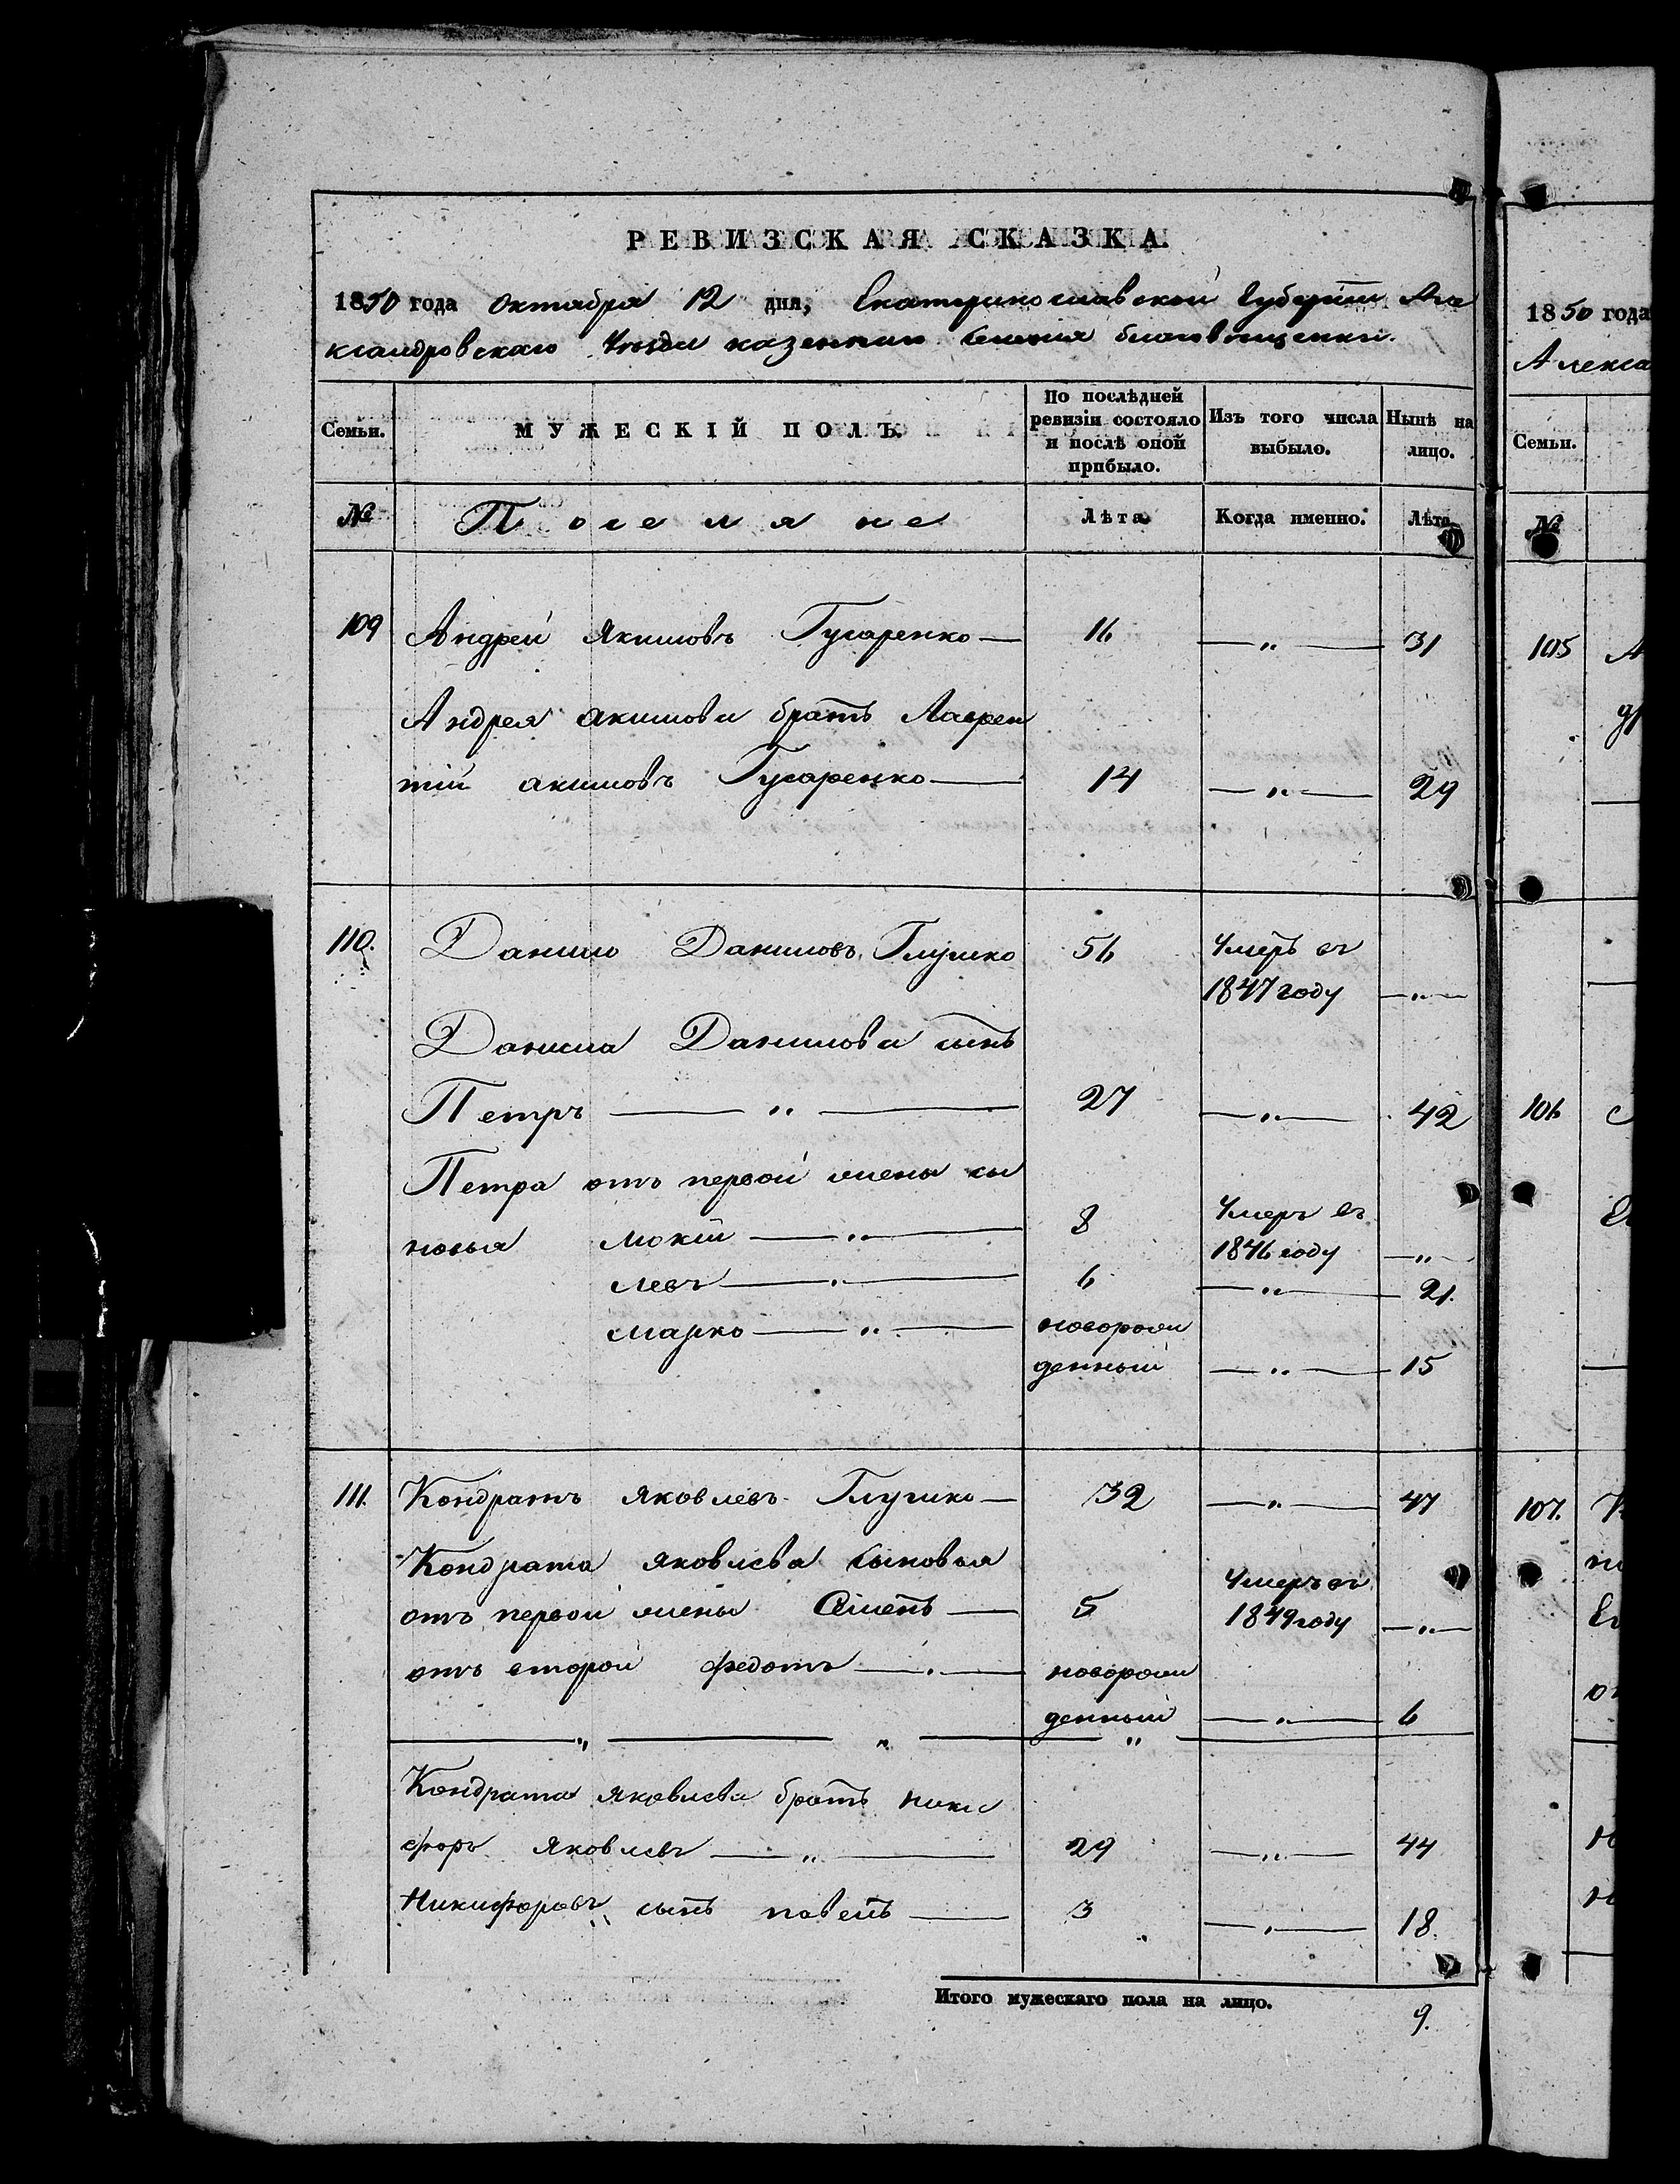 РЕВИЗСКАЯ СКАЗКА.
1850 года Октября 12 дня, Екатеринославской Губернiи Але
ксандровскаго Уезда казеннаго Селенiя благовещенки.
Семьи. МУЖЕСКIЙ ПОЛЪ. По послѣдней ревизiи состояло и послѣ оной прибыло. Изъ того числа выбыло. Нынѣ на лицо.
№ Поселяне Лѣта. Когда именно. Лѣта.
109 Андрей Якимовъ Гусаренко — 16 — „ — 31
Андрея Акимова братъ Лаврен
тiй акимовъ Гусаренко — 14 — „ — 29
110. Данило Даниловъ Глушко 56 Умеръ въ
1847 году — „ —
Данила Данилова сынъ
Петръ — „ — 27 — „ — 42
Петра отъ первой жены сы
новья Мокiй — „ — 8 Умеръ въ
1846 году — „
левъ — „ — 6 — „ — 21.
марко — „ — новорож
денный — „ — 15
111. Кондратъ Яковлевъ Глушко — 32 — „ — 47
Кондрата Яковлева сыновья
отъ первой жены Семенъ — 5 Умеръ въ
1849 году — „ —
отъ второй федотъ — „ — новорож
денный — „ — 6
— „ — „ — „ —
Кондрата Яковлева братъ ники
форъ Яковлевъ — „ — 29 — „ — 44
Никифоровъ сынъ павелъ — 3 — „ — 18.
Итого мужескаго пола на лицо. 9.
1850 года
Алекса
Семьи.
№
105 А
106
107. К